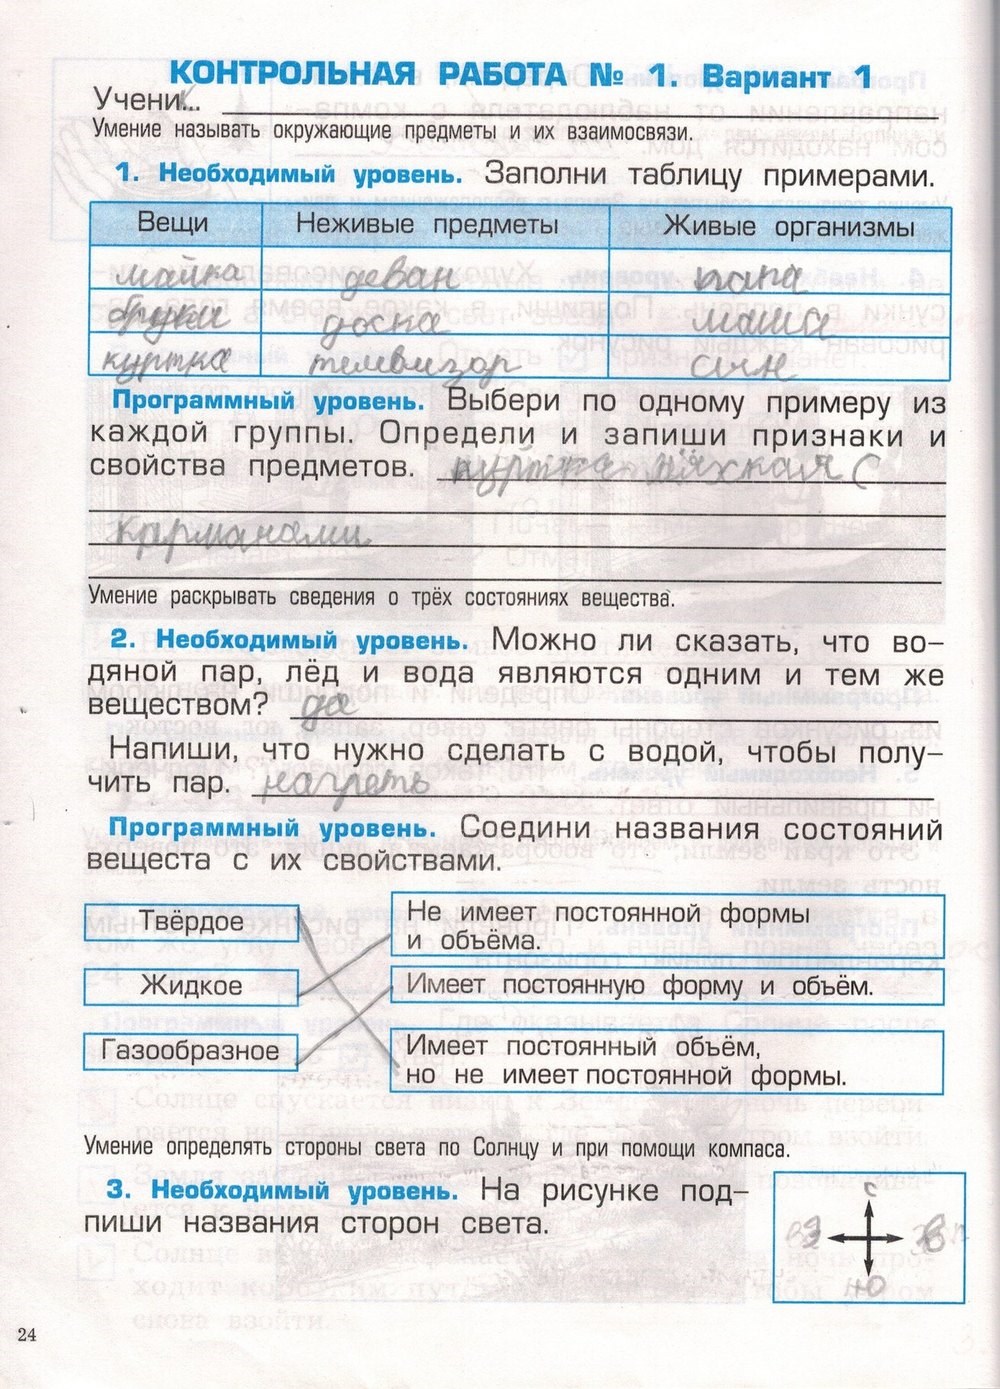 КОНТРОЛЬНАЯ РАБОТА № 1. Вариант 1
Учени...
Умение называть окружающие предметы и их взаимосвязи.
1. Необходимый уровень. Заполни таблицу примерами.
Вещи Неживые предметы Живые организмы
майка деван папа
брюки доска мама
куртка телевизор сын
Программный уровень. Выбери по одному примеру из
каждой группы. Определи и запиши признаки и
свойства предметов. куртка мяхкая с
карманами
Умение раскрывать сведения о трёх состояниях вещества.
2. Необходимый уровень. Можно ли сказать, что во-
дяной пар, лёд и вода являются одним и тем же
веществом? да
Напиши, что нужно сделать с водой, чтобы полу-
чить пар. нагреть
Программный уровень. Соедини названия состояний
вещества с их свойствами.
Твёрдое
Не имеет постоянной формы
и объёма.
Жидкое
Имеет постоянную форму и объём.
Газообразное
Имеет постоянный объём,
но не имеет постоянной формы.
Умение определять стороны света по Солнцу и при помощи компаса.
3. Необходимый уровень. На рисунке под-
пиши названия сторон света.
С
З В
Ю
24